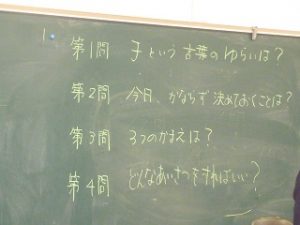 第1問 子という言葉のゆらいは?
第2問 今日、かならず決めておくことは?
第3問 3つのかまえは?
第4問 どんなあいさつをすればいい?